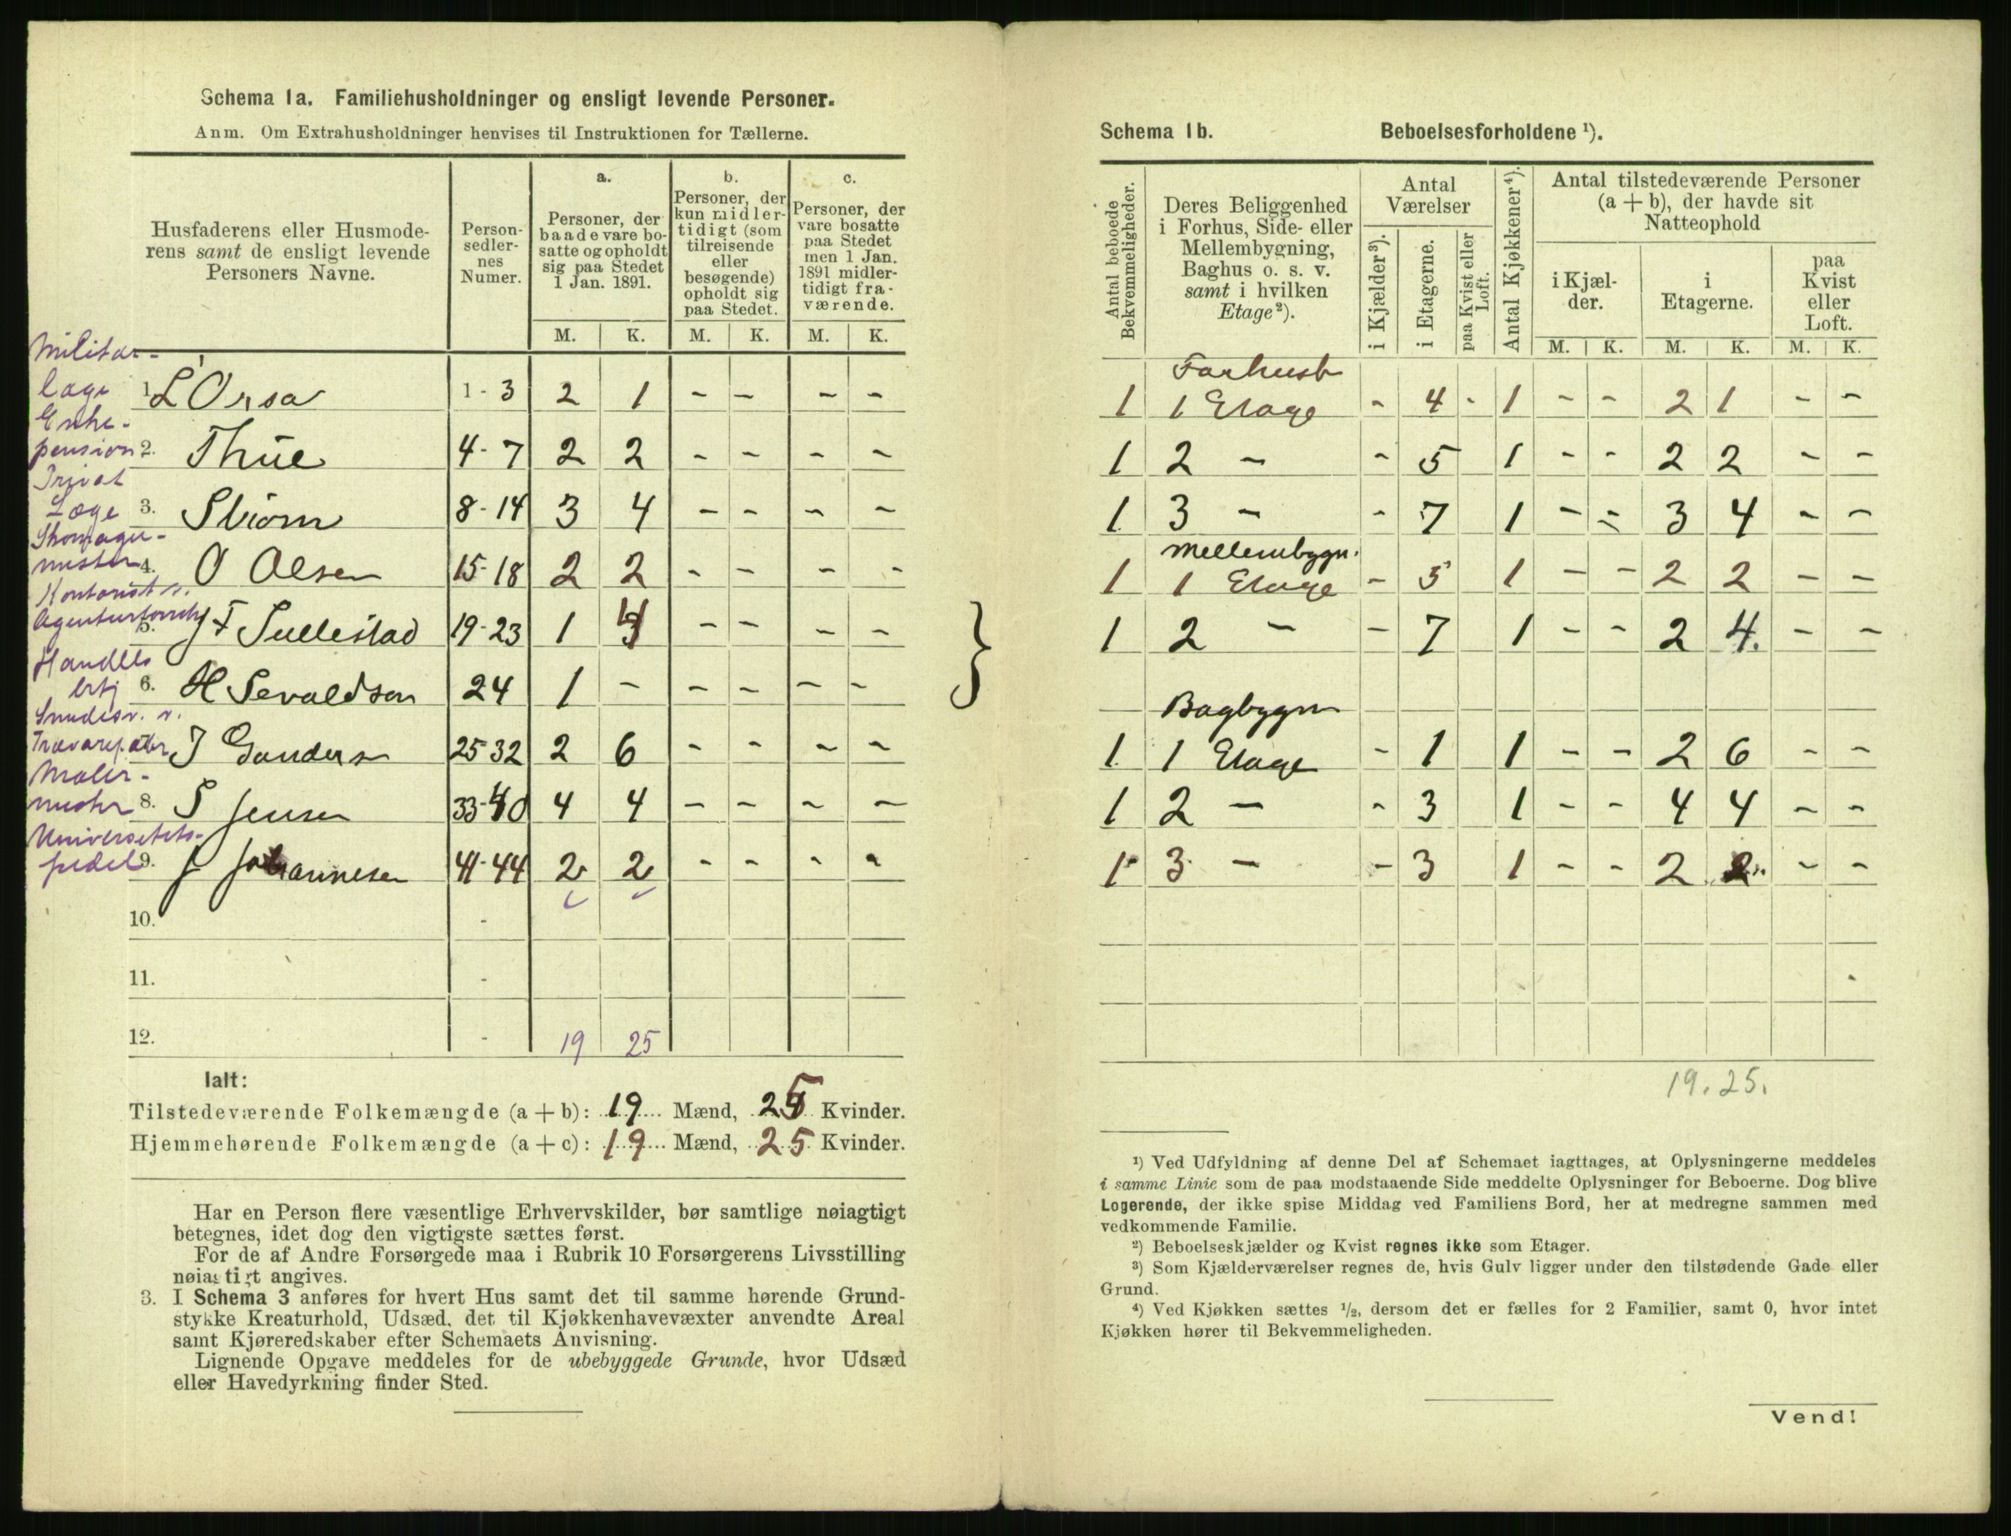 Schema 1a. Familiehusholdninger og ensligt levende Personer.
Anm. Om Extrahusholdninger henvises til Instruktionen for Tællerne.
Husfaderens eller Husmode-
rens samt de ensligt levende
Personers Navne.
Person-
sedler-
nes
Numer.
a.
Personer, der
baade vare bo-
satte og opholdt
sig paa Stedet
1 Jan. 1891.
b.
Personer, der
kun midler-
tidigt (som
tilreisende
eller
besøgende)
opholdt sig
paa Stedet.
c.
Personer, der
vare bosatte
paa Stedet
men 1 Jan.
1891 midler-
tidigt fra-
værende.
M. K. M. K. M. K.
Militær-
læge
1. L'Orsa 1-3 2 1 - - - -
Enke-
pension
2. Thue 4-7 2 2 - - - -
Privat
Læge
3. Strøm 8-14 3 4 - - - -
Skomager-
mester
4. O Olsen 15-18 2 2 - - - -
Kontorist v.
Agenturforretn
5. J F Tullestad 19-23 1 4 - - - -
Handels
betj
6. H Sevaldson 24 1 - - - - -
Snedkersv. v.
Trævarefabr
7. J Gundersen 25-32 2 6 - - - -
Maler-
mester
8. S Jensen 33-40 4 4 - - - -
Universitets-
pedel
9. J Johannesen 41-44 2 2 - - - -
10. -
11. -
12. - 19 25
Ialt:
Tilstedeværende Folkemængde (a + b): 19 Mænd, 25 Kvinder.
Hjemmehørende Folkemængde (a + c): 19 Mænd, 25 Kvinder.
Har en Person flere væsentlige Erhvervskilder, bør samtlige nøiagtigt
betegnes, idet dog den vigtigste sættes først.
For de af Andre Forsørgede maa i Rubrik 10 Forsørgerens Livsstilling
nøiagtigt angives.
3. I Schema 3 anføres for hvert Hus samt det til samme hørende Grund-
stykke Kreaturhold, Udsæd, det til Kjøkkenhavevæxter anvendte Areal
samt Kjøreredskaber efter Schemaets Anvisning.
Lignende Opgave meddeles for de ubebyggede Grunde, hvor Udsæd
eller Havedyrkning finder Sted.
Schema 1b. Beboelsesforholdene ¹).
Antal beboede
Bekvemmeligheder.
Deres Beliggenhed
i Forhus, Side- eller
Mellembygning,
Baghus o. s. v.
samt i hvilken
Etage²).
Antal
Værelser
i Kjælder³).
i Etagerne.
paa Kvist eller
Loft.
Antal Kjøkkener⁴).
Antal tilstedeværende Personer
(a + b), der havde sit
Natteophold
i Kjæl-
der.
i
Etagerne.
paa
Kvist
eller
Loft.
M. K. M. K. M. K.
Forhust
1 1 Etage - 4 - 1 - - 2 1 - -
1 2 - - 5 1 - - 2 2 - -
1 3 - - 7 1 - - 3 4 - -
Mellembygn.
1 1 Etage - 5 1 - - 2 2 - -
1 2 - - 7 1 - - 2 4. - -
Bagbygn
1 1 Etage - 1 1 - - 2 6 - -
1 2 - - 3 1 - - 4 4 - -
1 3 - - 3 1 - - 2 2 - -
19. 25.
¹) Ved Udfyldning af denne Del af Schemaet iagttages, at Oplysningerne meddeles
i samme Linie som de paa modstaaende Side meddelte Oplysninger for Beboerne. Dog blive
Logerende, der ikke spise Middag ved Familiens Bord, her at medregne sammen med
vedkommende Familie.
²) Beboelseskjælder og Kvist regnes ikke som Etager.
³) Som Kjælderværelser regnes de, hvis Gulv ligger under den tilstødende Gade eller
Grund.
⁴) Ved Kjøkken sættes ½, dersom det er fælles for 2 Familier, samt 0, hvor intet
Kjøkken hører til Bekvemmeligheden.
Vend!